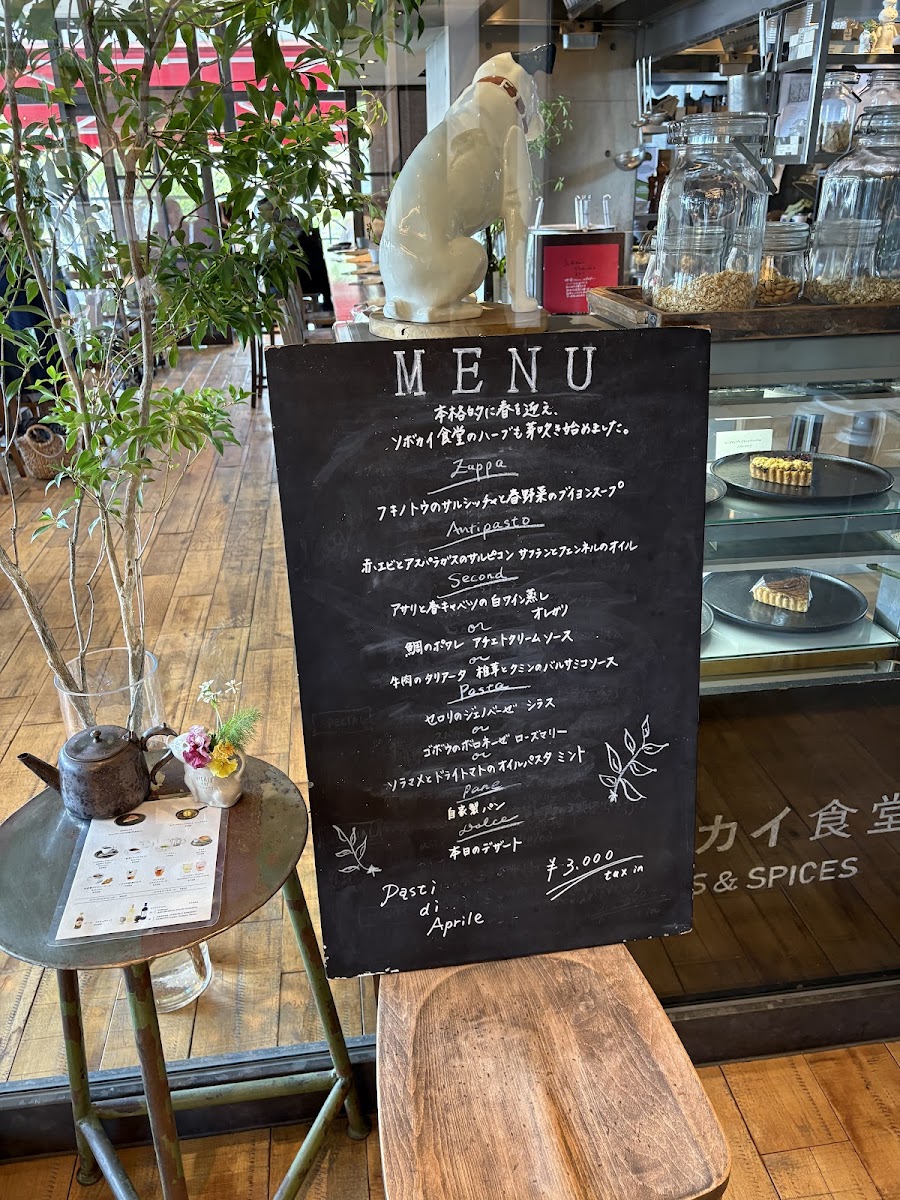 MENU
本格的に春を迎え、
ソボカイ食堂のハーブも芽吹き始めました。
Zuppa
フキノトウのサルシッチャと春野菜のブイヨンスープ
Antipasto
赤エビとアスパラガスのサルピコン サフランとフェンネルのオイル
Second
アサリと春キャベツの白ワイン蒸し
オレガノ
or
鯛のポワレ アチェトクリームソース
or
牛肉のタリアータ 椎茸とクミンのバルサミコソース
Pasta
セロリのジェノベーゼ シラス
or
ゴボウのボロネーゼ ローズマリー
or
ソラマメとドライトマトのオイルパスタ ミント
Pane
自家製パン
Dolce
本日のデザート
¥3,000
tax in
Pasti
di
Aprile
カイ食堂
S & SPICES